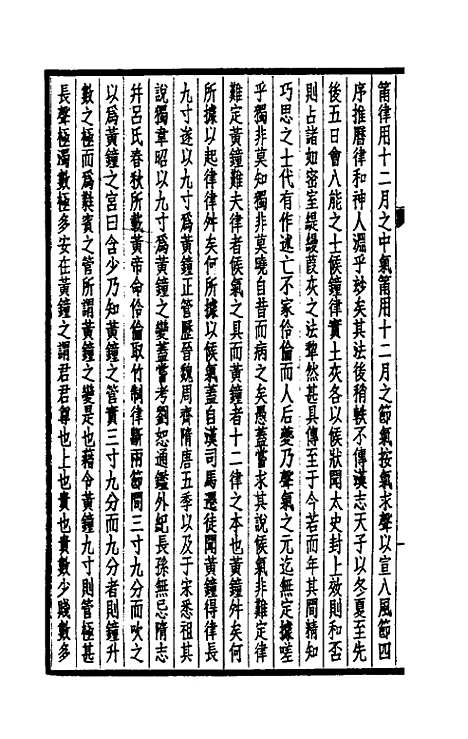 莆律用十二月之中氣莆用十二月之節氣按氣求聲以宣入風節四
序推曆律和神人淵乎玅矣其法後稍軼不傳漢志天子以冬夏至先
後五日會八能之士候鐘律實土灰各以候狀聞太史封上效則和否
則占諸如密室緹縵葭灰之法犂然甚具傳至于今若而年其間精知
巧思之士代有作述亡不家伶倫而人后夔乃聲氣之元迄無定據嗟
乎獨非莫知獨非莫曉自昔而病之矣愚蓋嘗求其說候氣非難定律
難定黃鐘難夫律者候氣之具而黃鐘者十二律之本也黃鐘舛矣何
所據以起律律舛矣何所據以候氣蓋自漢司馬遷徒聞黃鐘得律長
九寸遂以九寸爲黃鐘正管歷晉魏周齊隋唐五季以及于宋悉祖其
說獨韋昭以九寸爲黃鐘之變蓋嘗考劉恕通鑑外紀長孫無忌隋志
幷呂氏春秋所載黃帝命伶倫取竹制律斷兩節間三寸九分而吹之
以爲黃鐘之宮曰含少乃知黃鐘之管實三寸九分而九分者則鐘升
數之極而爲蕤賓之管所謂黃鐘之變是也藉令黃鐘九寸則管極甚
長聲極濁數極多安在黃鐘之謂君君尊也上也貴也貴數少賤數多